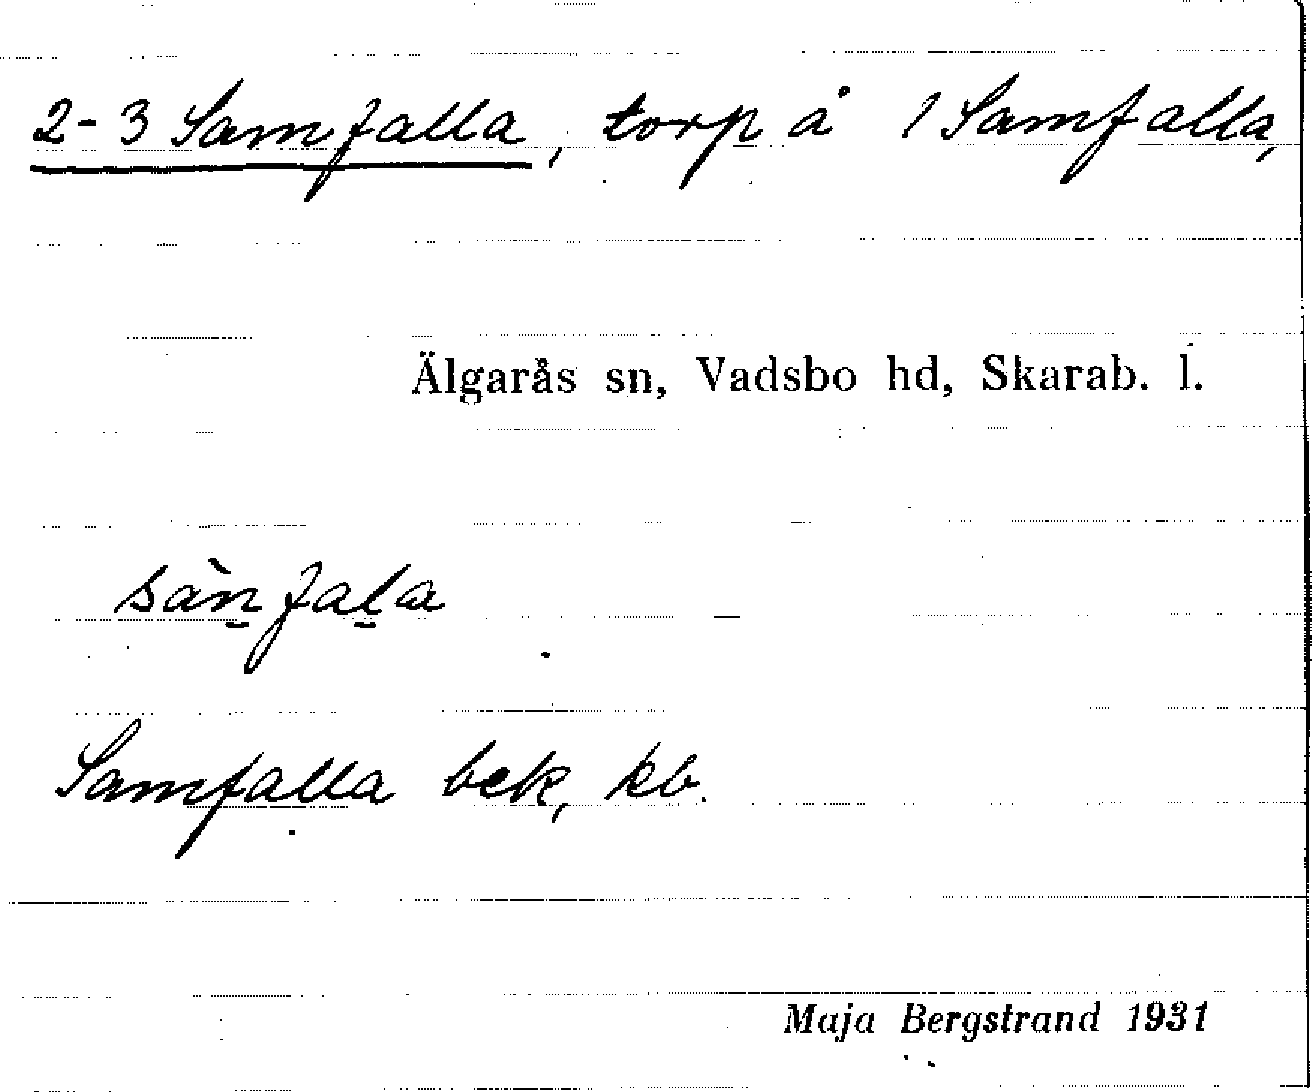 2-3 Samfalla, torp å 1 Samfalla,
Älgarås sn, Vadsbo hd, Skarab. l.
sàn̲fal̲a
Samfalla bek, kb.
Maja Bergstrand 1931